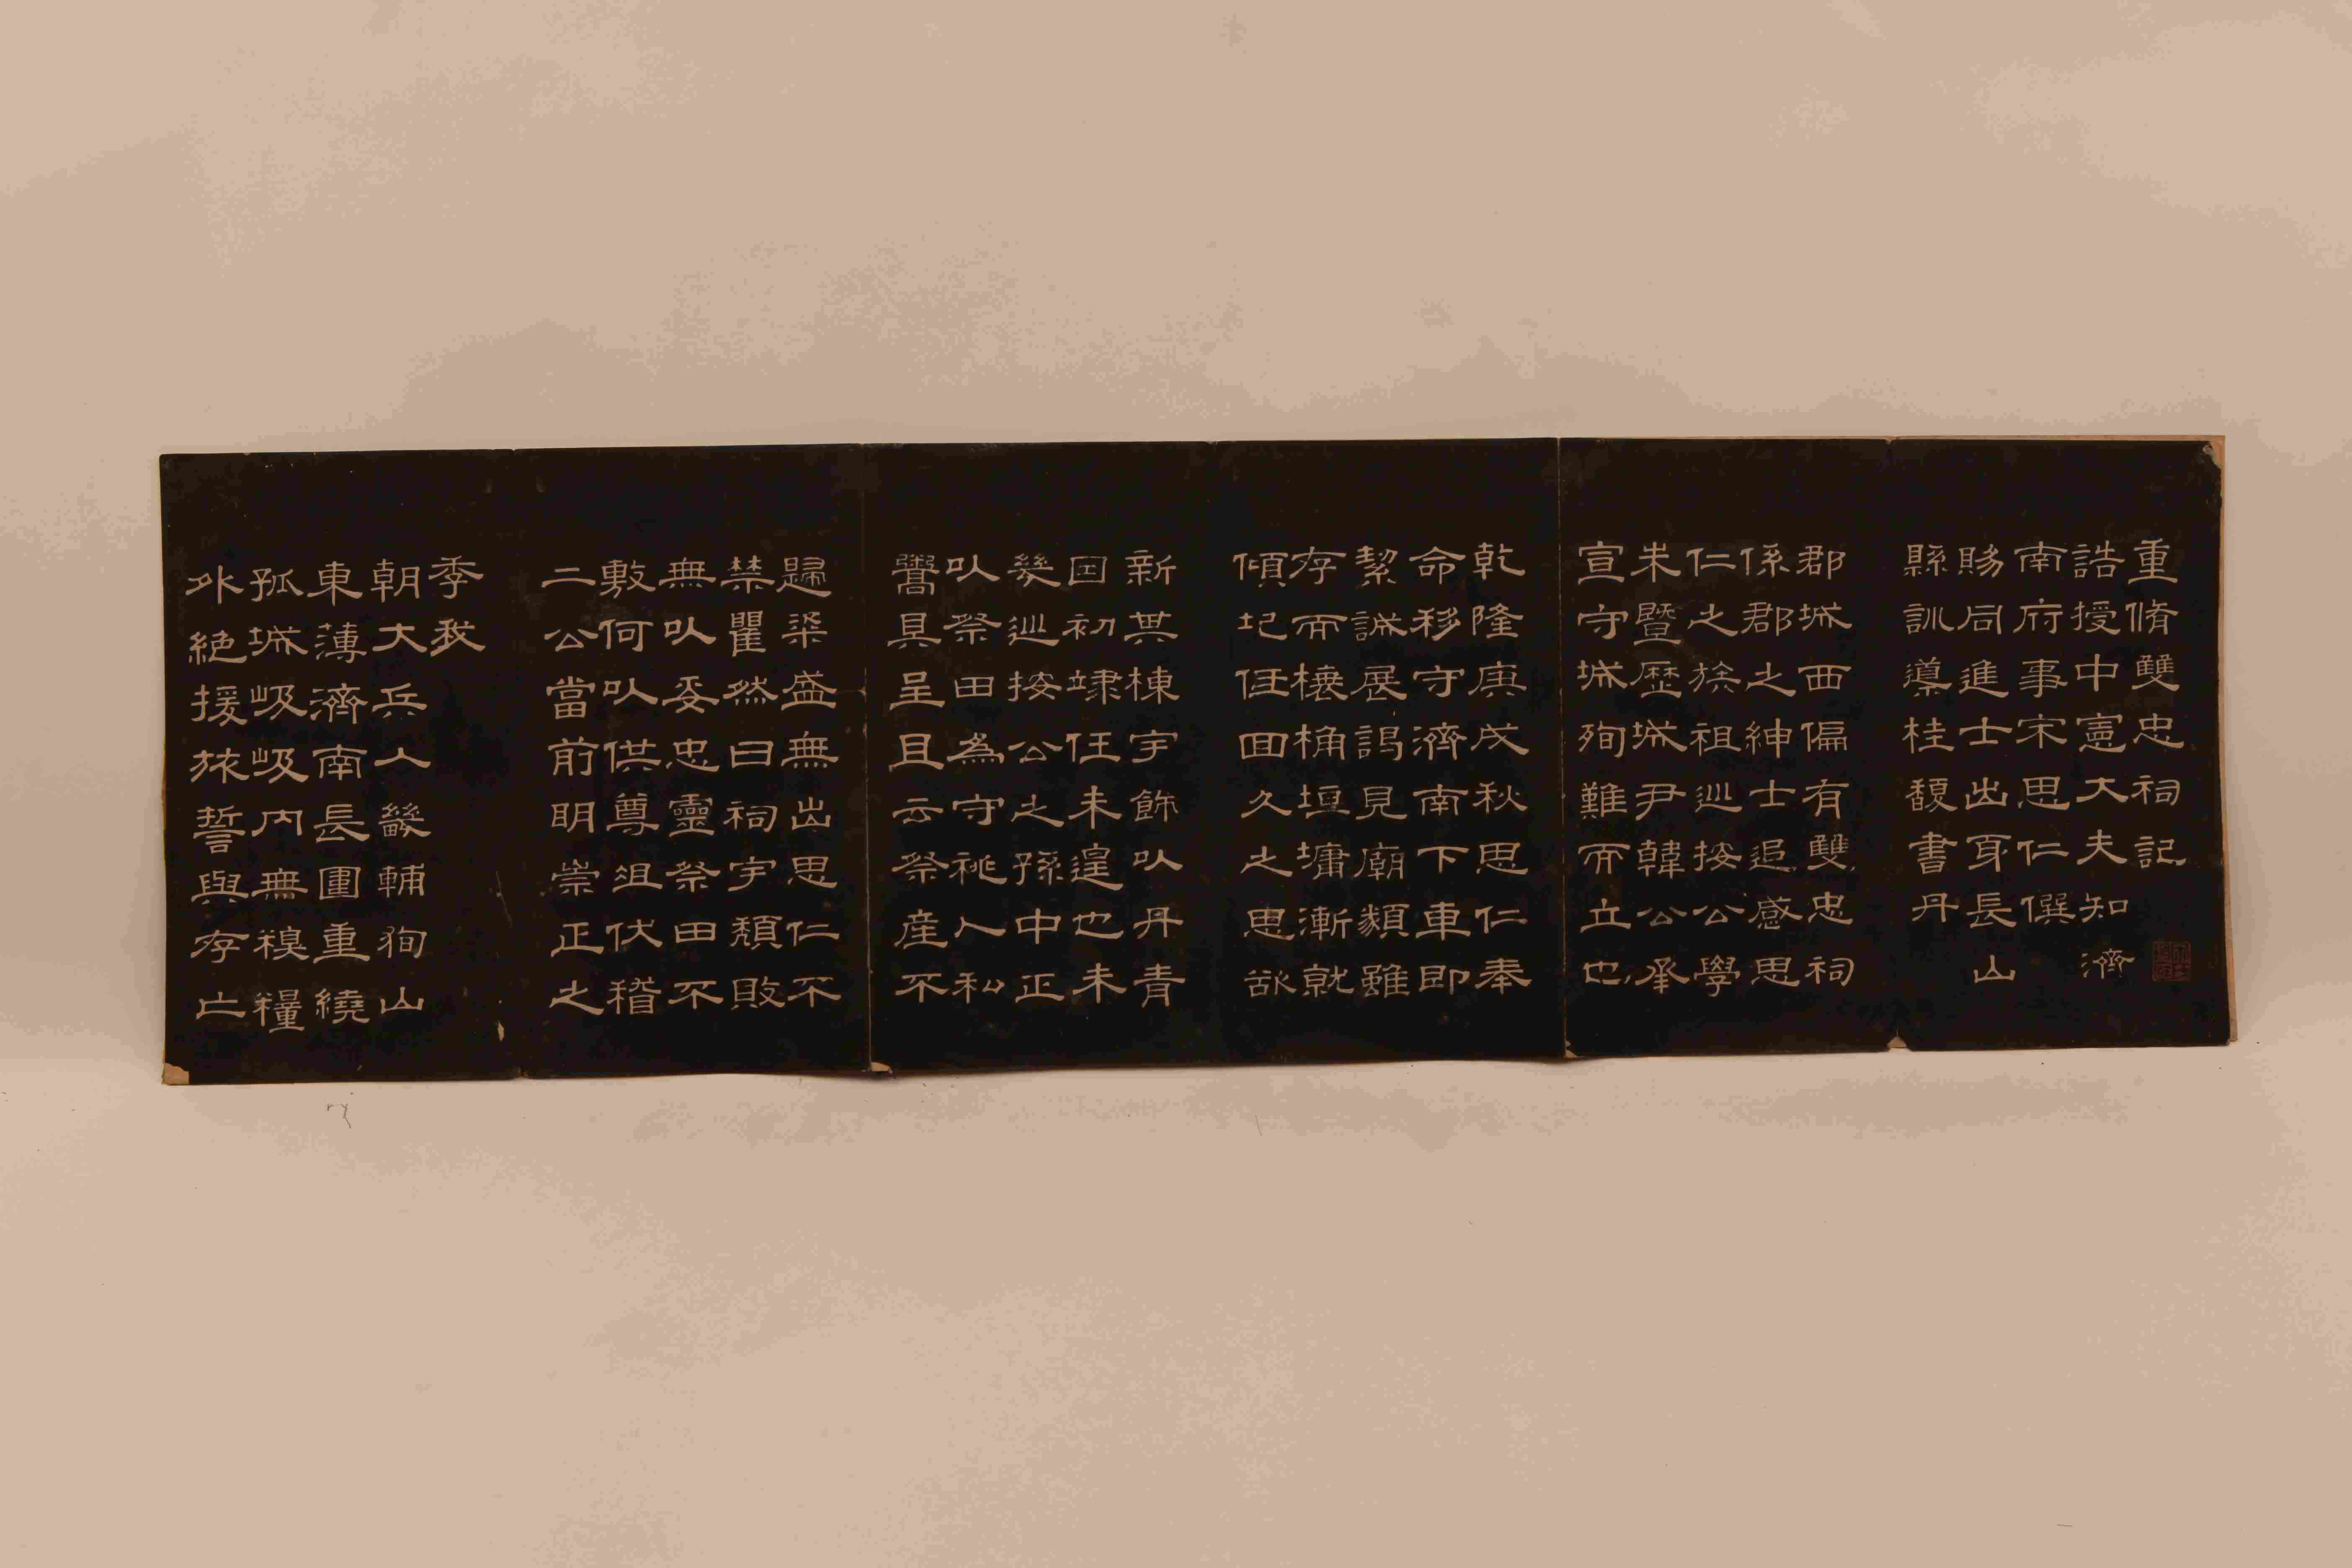 重脩雙忠祠記
誥授中憲大夫知濟
南府事宋思仁撰
賜同進士出身長山
縣訓導桂馥書丹
郡城西偏有雙忠祠
係郡之紳士追感思
仁之族祖巡按公學
朱暨歷城尹韓公承
宣守城殉難而立也
乾隆庚戌秋思仁奉
命移守濟南下車即
絜誠展謁見廟貌雖
存而榱桷垣墉漸就
傾圮低回久之思欲
新其棟宇飾以丹青
因初肂任未遑也未
幾巡按公之孫中正
以祭田為守祧人私
鬻具呈且云祭產不
歸粢盛無出思仁不
禁瞿然曰祠宇頹敗
無以妥忠靈祭田不
敷何以供尊俎伏稽
二公當前明崇正之
季我
朝大兵入畿輔徇山
東薄濟南長圍重繞
孤城岌岌內無糗糧
外絕援旅誓與存亡